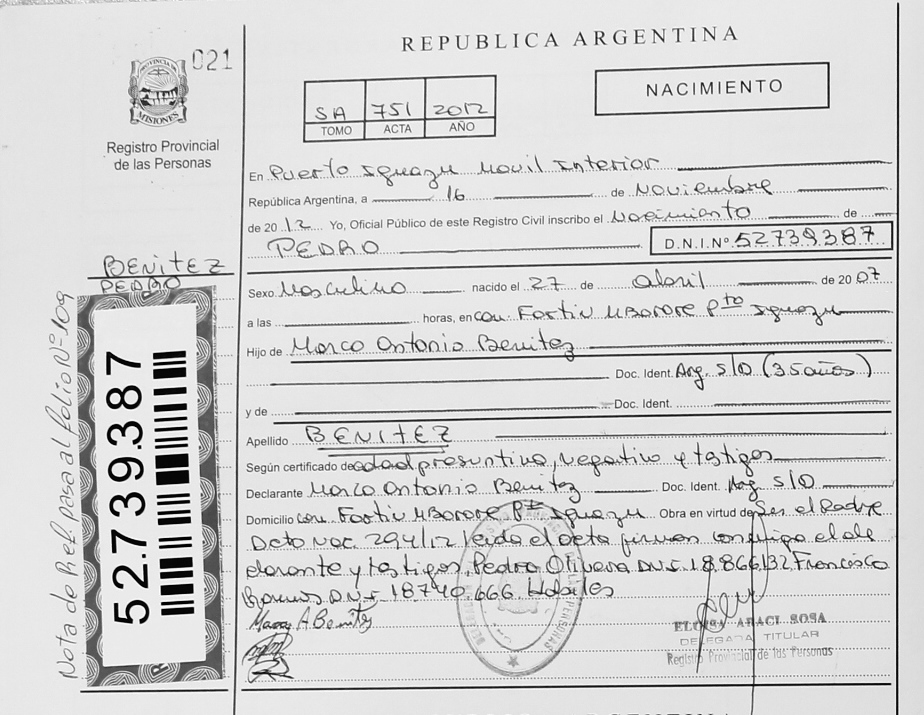 REPUBLICA ARGENTINA
021
PROVINCIA DE MISIONES
Registro Provincial
de las Personas
SA 751 2012
TOMO ACTA AÑO
NACIMIENTO
En Puerto Iguazu Movil Interior
República Argentina, a 16 de Noviembre
de 2012 Yo, Oficial Público de este Registro Civil inscribo el Nacimiento de
PEDRO D.N.I.Nº 52739387
BENITEZ
PEDRO
Sexo Masculino nacido el 27 de abril de 2007
a las horas, en com. Fortin Mborore Pto Iguazu
Hijo de Marco Antonio Benitez
Doc. Ident. Arg. S/D (35 años)
y de Doc. Ident.
Apellido BENITEZ
Según certificado de edad presuntiva, negativo y testigos
Declarante Marco Antonio Benitez Doc. Ident. Arg. S/D
Domicilio com. Fortin Mborore Pto Iguazu Obra en virtud de Ser el Padre
Dcto Nac. 294/12 leido el acta firman conmigo el de
clarante y testigos, Pedro Olivera D.N.I. 18.866.132 Francisco
Ramos D.N.I. 18740.666. Habiles
Marco A Benitez
ELOISA ARACI SOSA
DELEGADA TITULAR
Registro Provincial de las Personas
Nota de Ref. pasa al folio Nº 109
52.739.387